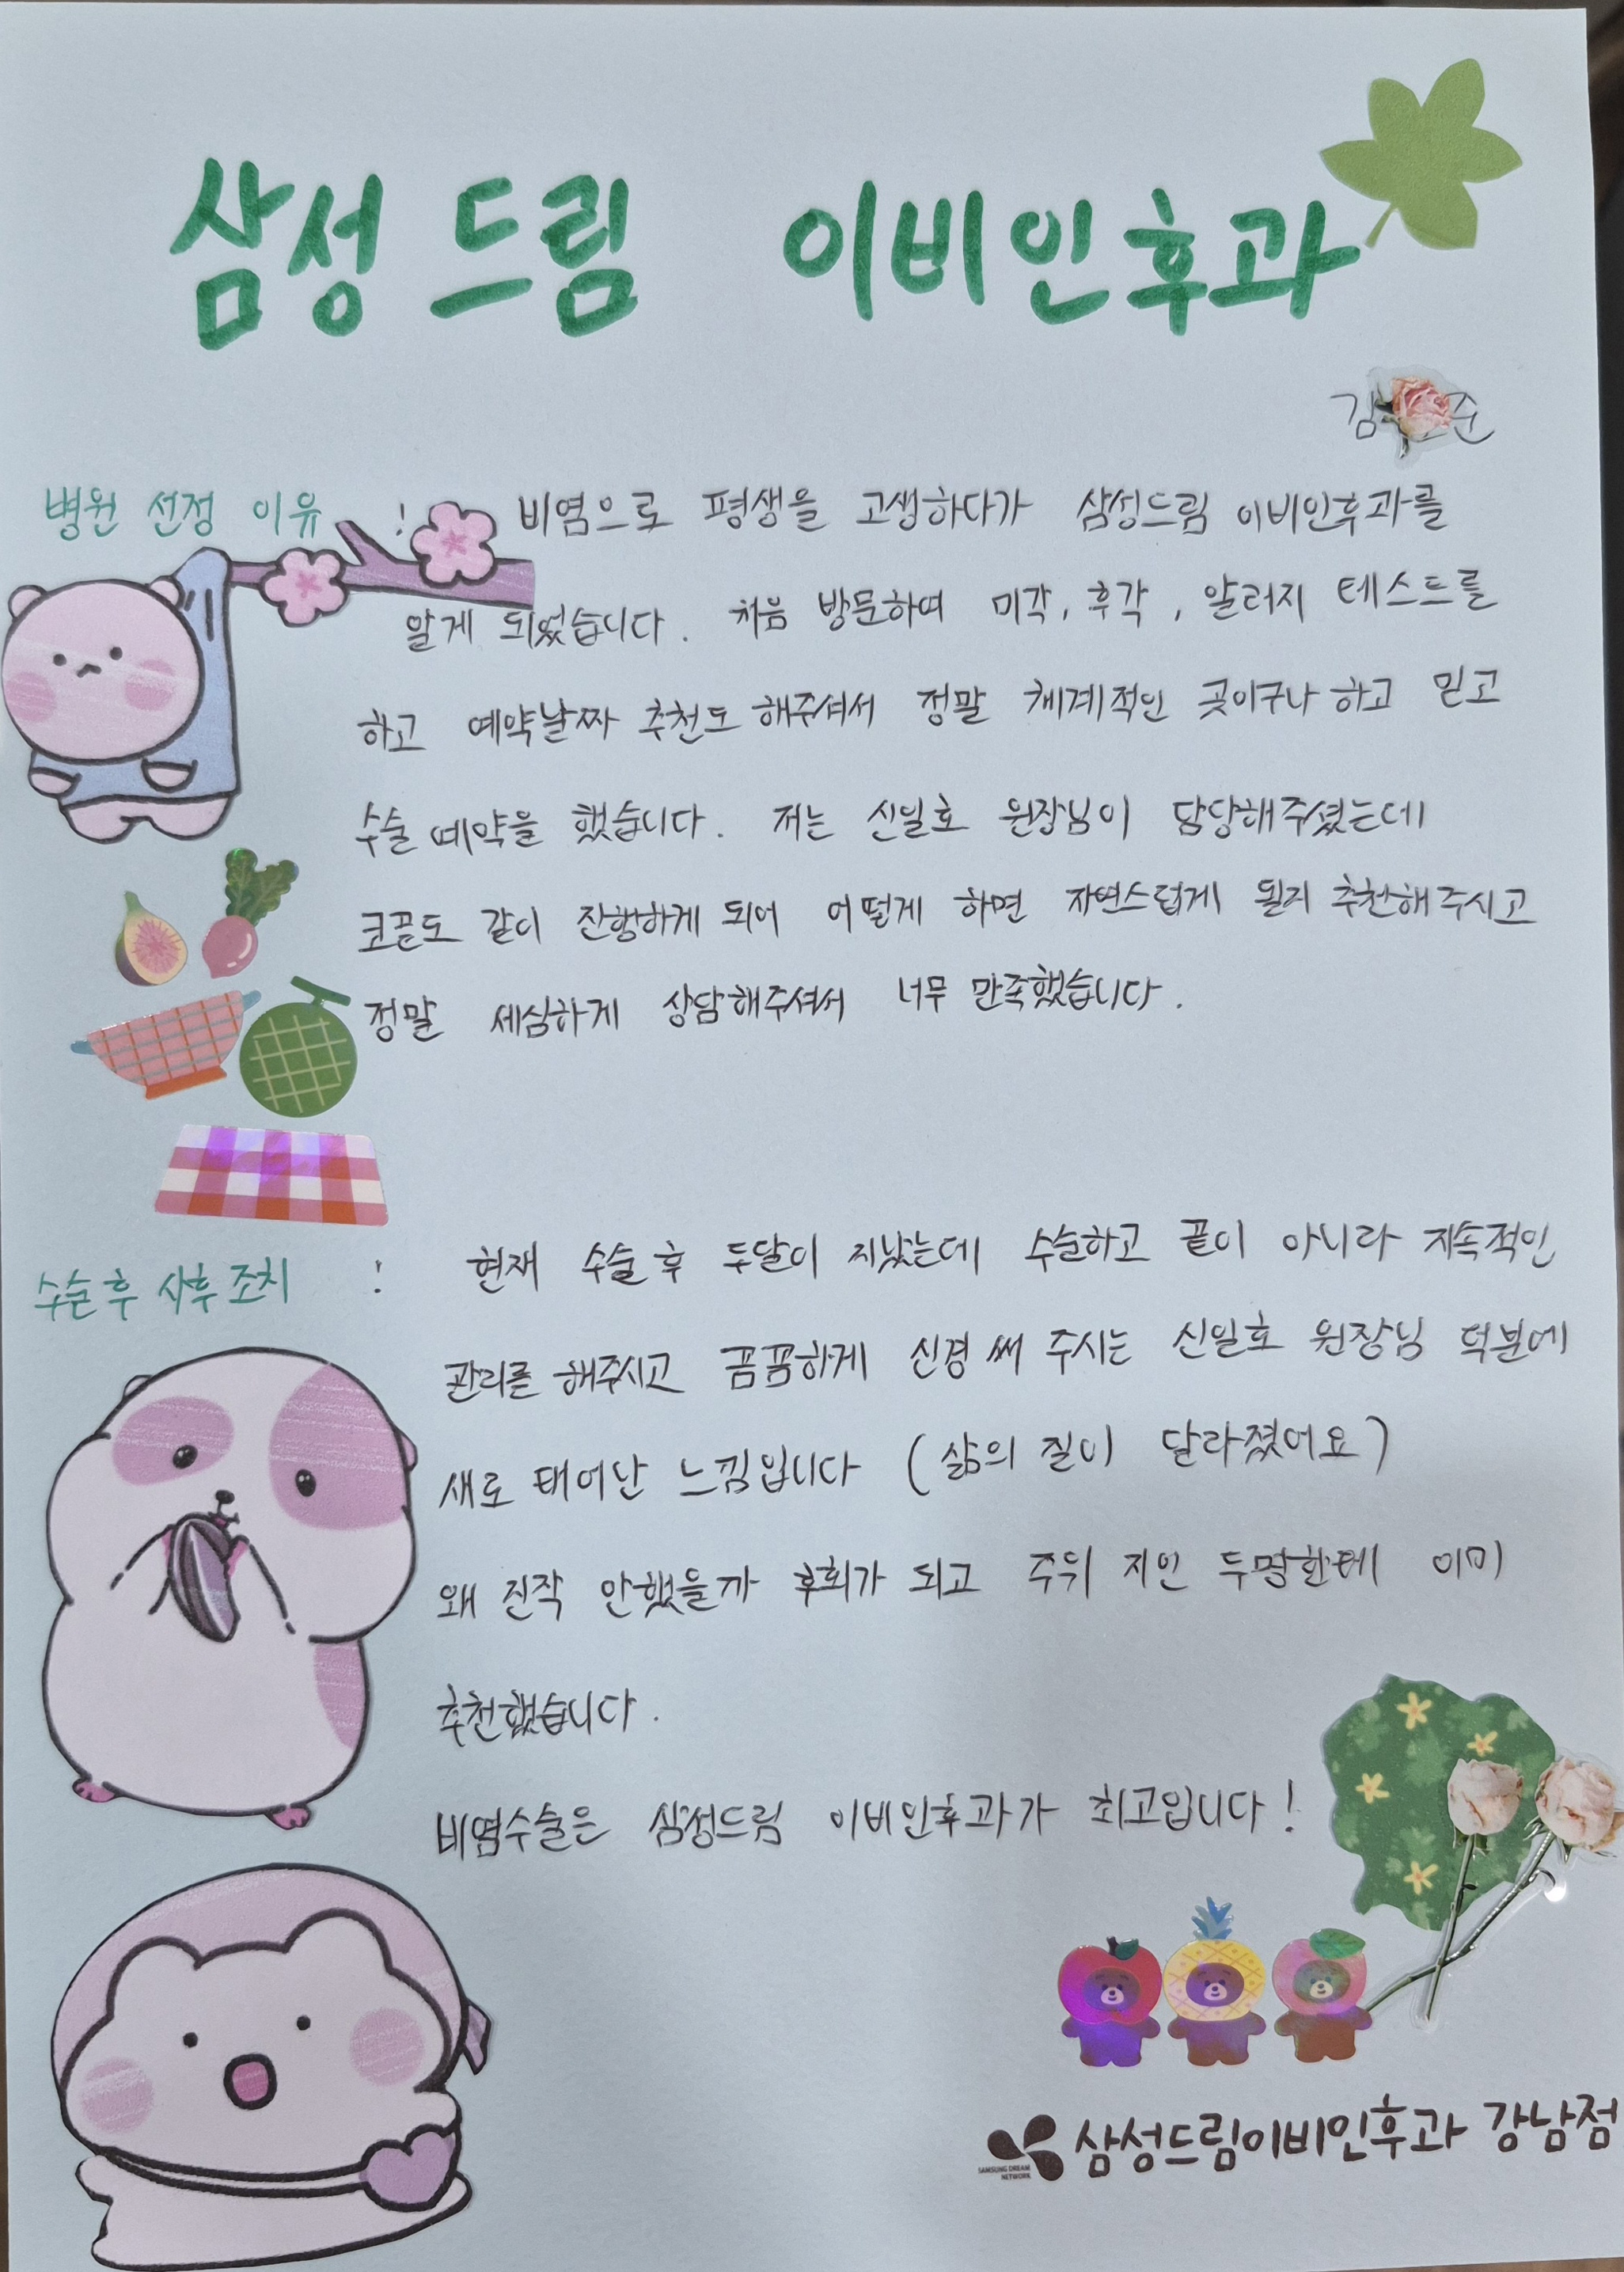 삼성 드림 이비인후과
김 준
병원 선정 이유 : 비염으로 평생을 고생하다가 삼성드림 이비인후과를
알게 되었습니다. 처음 방문하여 미각, 후각, 알러지 테스트를
하고 예약날짜 추천도 해주셔서 정말 체계적인 곳이구나 하고 믿고
수술 예약을 했습니다. 저는 신일호 원장님이 담당해주셨는데
코끝도 같이 진행하게 되어 어떻게 하면 자연스럽게 될지 추천해주시고
정말 세심하게 상담해주셔서 너무 만족했습니다.
수술후 사후조치 : 현재 수술 후 두달이 지났는데 수술하고 끝이 아니라 지속적인
관리를 해주시고 꼼꼼하게 신경 써 주시는 신일호 원장님 덕분에
새로 태어난 느낌입니다 (삶의 질이 달라졌어요)
왜 진작 안했을까 후회가 되고 주위 지인 두명한테 이미
추천했습니다.
비염수술은 삼성드림 이비인후과가 최고입니다!
SAMSUNG DREAM
NETWORK
삼성드림이비인후과 강남점